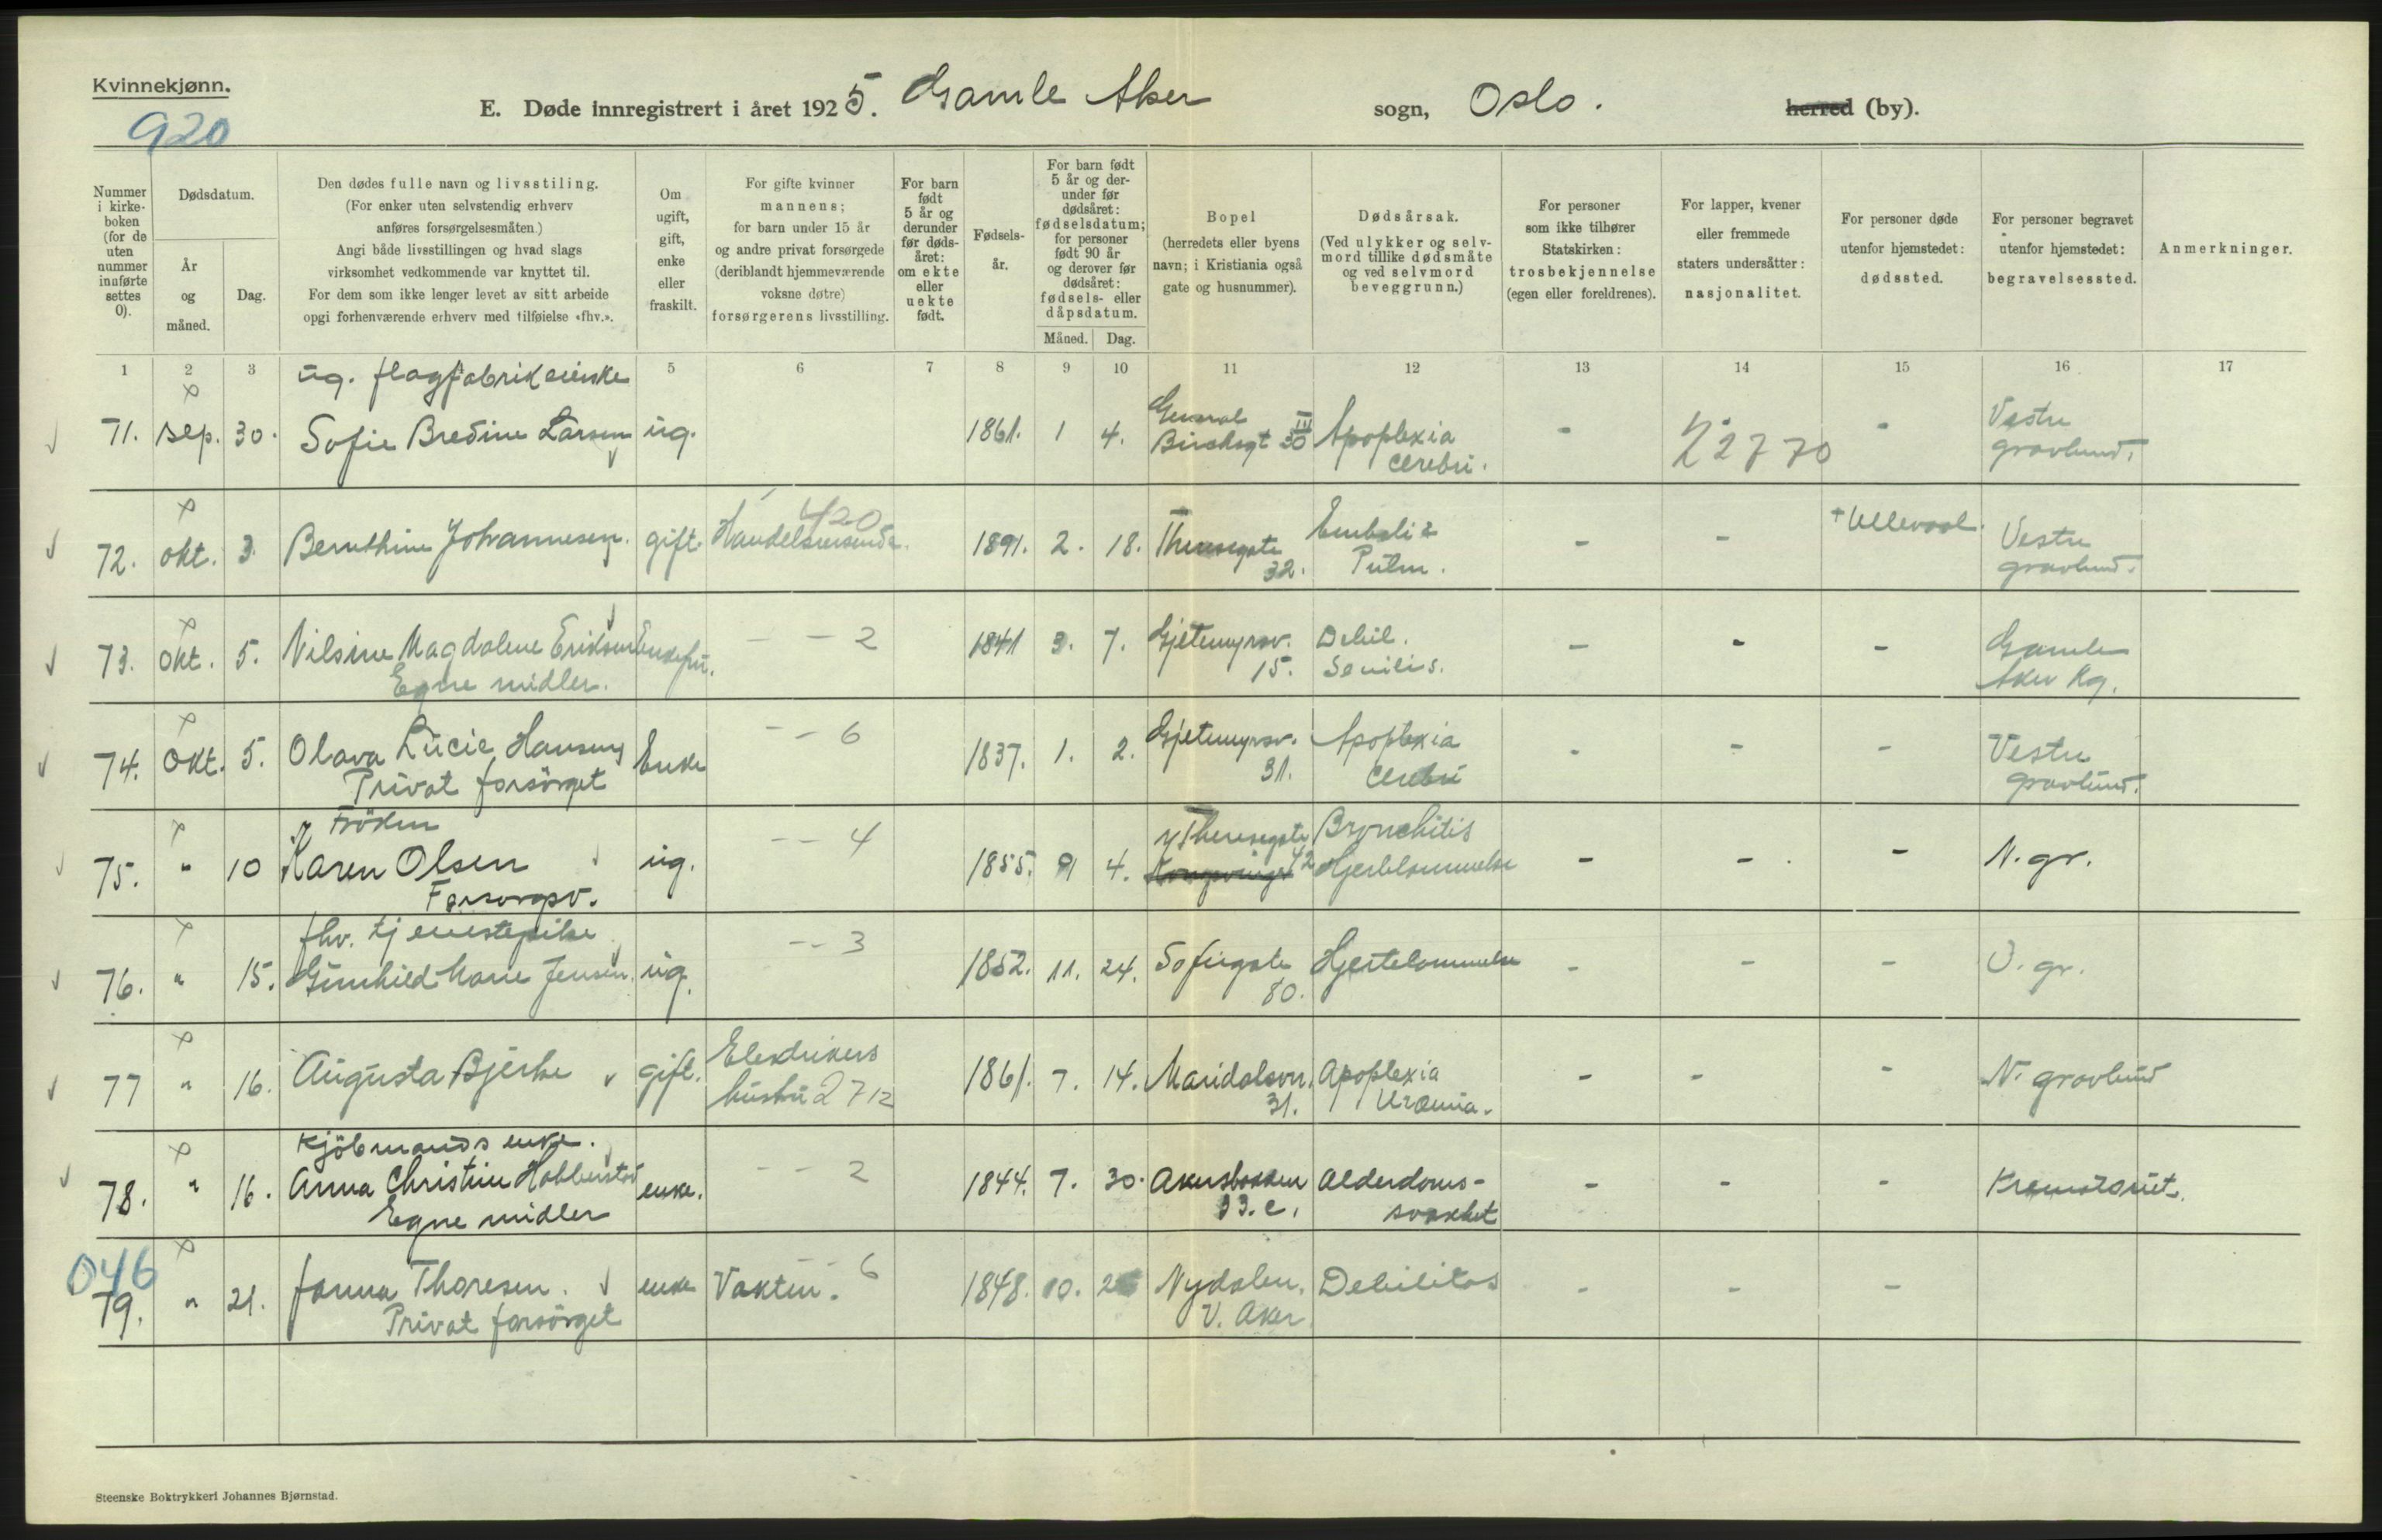 Kvinnekjønn.
920
E. Døde innregistrert i året 1925. Gamle Aker sogn, Oslo. herred (by).
Nummer i kirkeboken (for de uten nummer innførte settes 0).
Dødsdatum.
År og måned.
Dag.
Den dødes fulle navn og livsstiling.
(For enker uten selvstendig erhverv
anføres forsørgelsesmåten.)
Angi både livsstillingen og hvad slags
virksomhet vedkommende var knyttet til.
For dem som ikke lenger levet av sitt arbeide
opgi forhenværende erhverv med tilføielse «fhv.».
Om ugift, gift, enke eller fraskilt.
For gifte kvinner
mannens;
for barn under 15 år
og andre privat forsørgede
(deriblandt hjemmeværende
voksne døtre)
forsørgerens livsstilling.
For barn født 5 år og derunder før dødsåret: om ekte eller uekte født.
Fødselsår.
For barn født 5 år og derunder før dødsåret: fødselsdatum; for personer født 90 år og derover før dødsåret: fødsels- eller dåpsdatum.
Måned. Dag.
Bopel
(herredets eller byens
navn; i Kristiania også
gate og husnummer).
Dødsårsak.
(Ved ulykker og selvmord tillike dødsmåte
og ved selvmord
beveggrunn.)
For personer
som ikke tilhører
Statskirken:
trosbekjennelse
(egen eller foreldrenes).
For lapper, kvener
eller fremmede
staters undersåtter:
nasjonalitet.
For personer døde
utenfor hjemstedet:
dødssted.
For personer begravet
utenfor hjemstedet:
begravelsessted.
Anmerkninger.
1 2 3 5 6 7 8 9 10 11 12 13 14 15 16 17
ug. flagfabrikeierske
71. Sep. 30. Sofie Bredine Larsen ug. 1861. 1 4. General Birchsgt III 30 Apoplexia cerebri. - 2770 - Vestre gravlund.
72. okt. 3. Bernthine Johannesen. gift Handelsreisende. 420 1891. 2. 18. Theresegate 32. Emboli Pulm. - - + Ullevaal. Vestre gravlund.
73. okt. 5. Nilsine Magdalene Eriksen Enkefru. - - 2 1841 3. 7. Gjetemyrsv. 15. Debil. Senilis. - - - Gamle Aker Kg.
Egne midler.
74. Okt. 5. Olava Lucie Hansen Enke - - 6 1837. 1. 2. Gjetemyrsv. 31. Apoplexia Cerebri - - - Vestre gravlund.
Privat forsörget
Fröken
75. " 10 Karen Olsen ug. - - 4 1855. 9 4. Theresegate 42 Bronchitis Hjertelammelse - - - N. gr.
Forsorgsv.
fhv. tjenestepike
76. " 15. Gunhild Marie Jensen. ug. - - 3 1852. 11. 24. Sofiegate 80. Hjertelammelse - - - V. gr.
77 " 16. Augusta Bjerke gift. Elektrikers hustru 2712 1861. 7. 14. Maridalsvn. 31. Apoplexia Uræmia. - - - N. gravlund
Kjöbmands enke.
78. " 16. Anna Christine Hobberstad enke. - - 2 1844. 7. 30. Akersbakken 33. c. Alderdoms- svakhet - - - Krematoriet.
Egne midler
046
79. " 21. Janna Thoresen. enke Vaktm. 6 1848. 10. Nydalen. V. Aker Debilitas - - -
Privat forsörget
Steenske Boktrykkeri Johannes Bjørnstad.